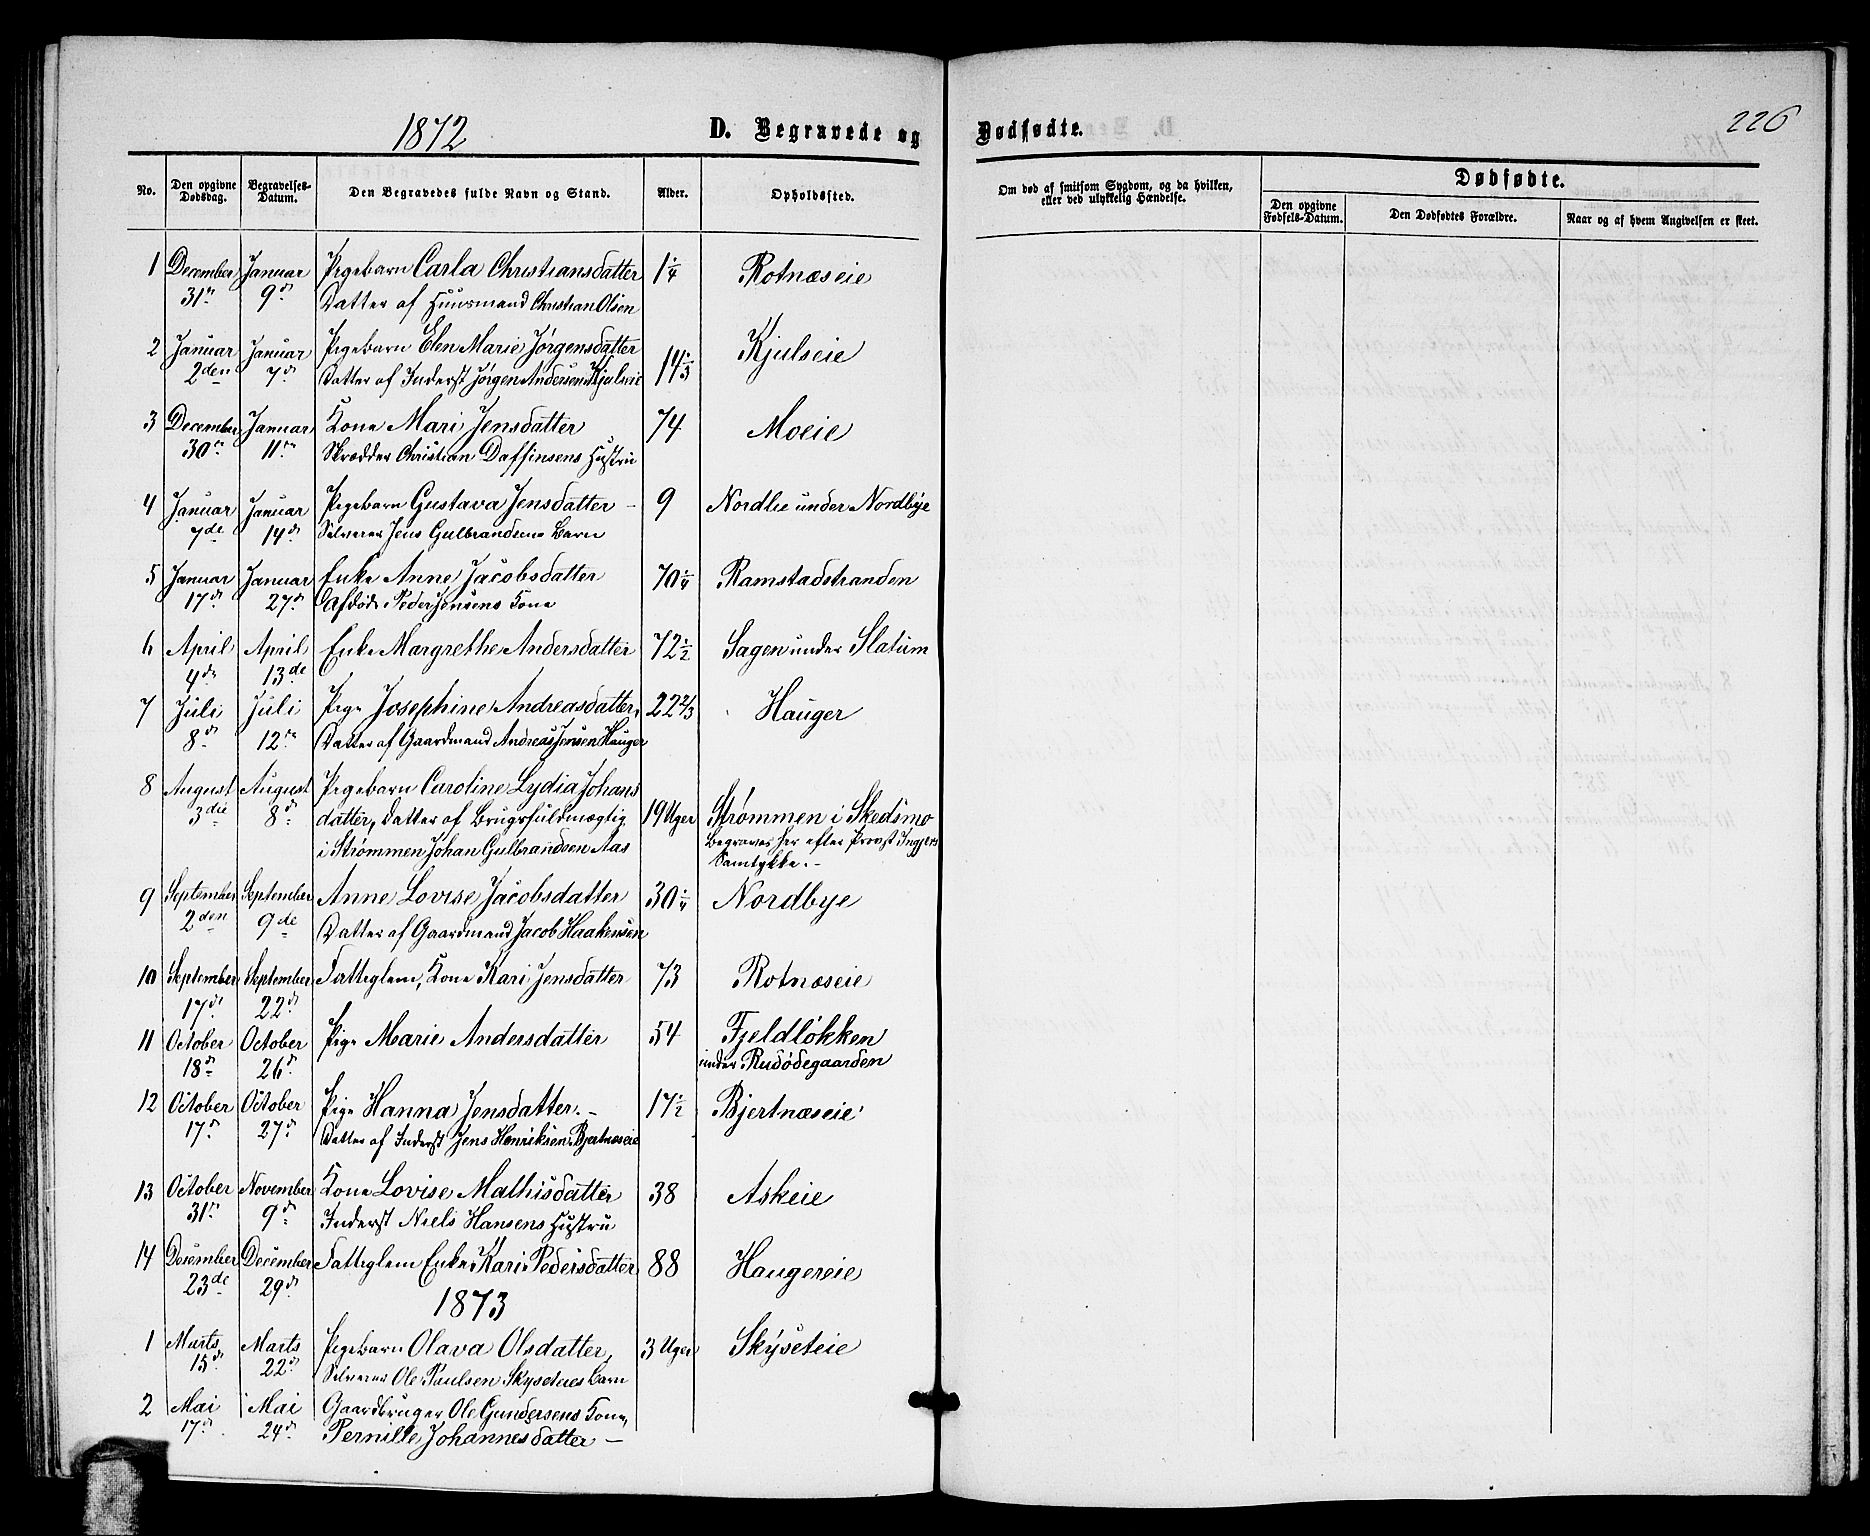 1872
D. Begravede og Dødfødte.
226
No.
Den opgivne Dødsdag.
Begravelses-Datum.
Den Begravedes fulde Navn og Stand.
Alder.
Opholdssted.
Om død af smitsom Sygdom, og da hvilken, eller ved ulykkelig Hændelse.
Dødfødte.
Den opgivne Fødsels-Datum.
Den Dødfødtes Forældre.
Naar og af hvem Angivelsen er skeet.
1 December Januar Pigebarn Carla Christiansdatter 1 1/4 Rotnæseie
31te 9de Datter af Huusmand Christian Olsen
2 Januar Januar Pigebarn Elen Marie Jørgensdatter 14 1/3 Kjulseie
2den 7de Datter af Inderst Jørgen Andersen Kjulseie
3 December Januar Kone Mari Jensdatter 74 Moeie
30te 11te Skrædder Christian Daffinsens Hustru
4 Januar Januar Pigebarn Gustava Jensdatter – 9 Nordlie under Nordbye
7de 14de Selveier Jens Gulbrandsens Barn
5 Januar Januar Enke Anne Jacobsdatter 70 1/4 Ramstadstranden
17de 27de Afdøde Peder Jensens Kone
6 April April Enke Margrethe Andersdatter 72 1/2 Sagen under Slatum
4de 13de
7 Juli Juli Pige Josephine Andreasdatter, 22 2/3 Hauger
8de 12te Datter af Gaardmand Andreas Jensen Hauger
8 August August Pigebarn Caroline Lydia Johans
3die 8de datter, Datter af Brugsfuldmægtig 19 Uger Strømmen i Skedsmo
i Strømmen Johan Gulbrandsen Aas Begraves her efter Provst Ingjers
Samtykke. –
9 September September Anne Lovise Jacobsdatter 30 1/4 Nordbye
2den 9de Datter af Gaardmand Jacob Haakensen
10 September September Fattiglem, Kone Kari Jensdatter 73 Rotnæseie
17de 22de
11 October October Pige Marie Andersdatter 54 Fjeldløkken
18de 26de under Rudødegaarden
12 October October Pige Hanna Jensdatter. – 17 1/2 Bjertnæseie
17de 27de Datter af Inderst Jens Henriksen Bjertnæseie
13 October November Kone Lovise Mathisdatter 38 Askeie
31te 9de Inderst Niels Hansens Hustru
14 December December Fattiglem Enke Kari Pedersdatter 88 Haugereie
23de 29de
1873
1 Marts Marts Pigebarn Olava Olsdatter, 3 Uger Skyseteie
15de 22de Selveier Ole Paulsen Skysetnes Barn
2 Mai Mai Gaardbruger Ole Gundersens Kone,
17de 24de Pernille Johannesdatter –